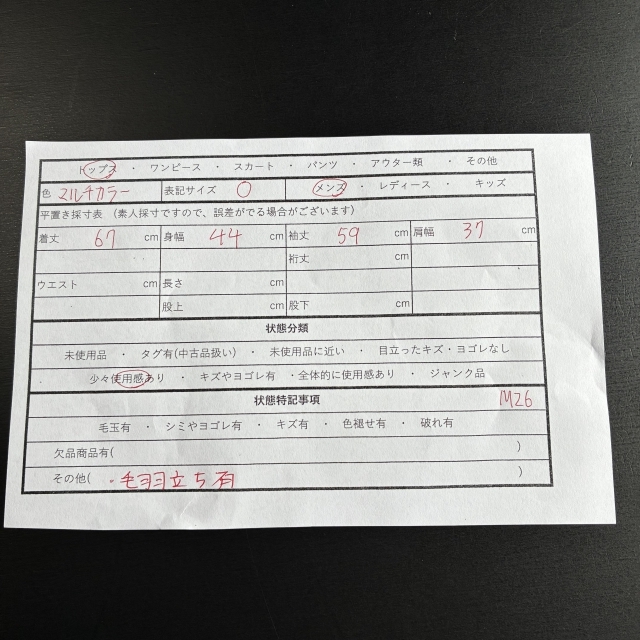 トップス ・ ワンピース ・ スカート ・ パンツ ・ アウター類 ・ その他
色 マルチカラー 表記サイズ 0 メンズ ・ レディース ・ キッズ
平置き採寸表 (素人採寸ですので、誤差がでる場合がございます)
着丈 67 cm 身幅 44 cm 袖丈 59 cm 肩幅 37 cm
裄丈 cm
ウエスト cm 長さ cm
股上 cm 股下 cm
状態分類
未使用品 ・ タグ有(中古品扱い) ・ 未使用品に近い ・ 目立ったキズ・ヨゴレなし
少々使用感あり ・ キズやヨゴレ有 ・全体的に使用感あり ・ ジャンク品
状態特記事項 M26
毛玉有 ・ シミやヨゴレ有 ・ キズ有 ・ 色褪せ有 ・ 破れ有
欠品商品有( )
その他( ・毛羽立ち有 )